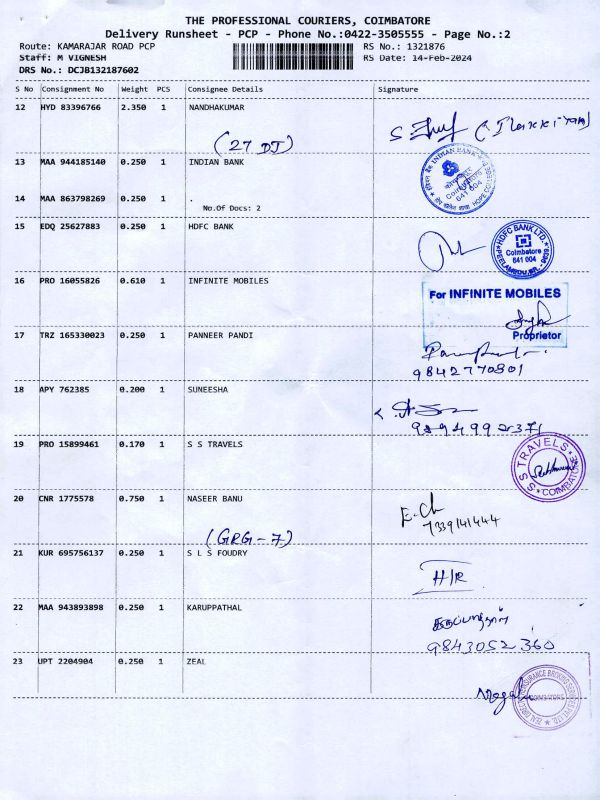 THE PROFESSIONAL COURIERS, COIMBATORE
Delivery Runsheet - PCP - Phone No.:0422-3505555 - Page No.:2
Route: KAMARAJAR ROAD PCP RS No.: 1321876
Staff: M VIGNESH RS Date: 14-Feb-2024
DRS No.: DCJB132187602
S No Consignment No Weight PCS Consignee Details Signature
12 HYD 83396766 2.350 1 NANDHAKUMAR
(27 DJ)
13 MAA 944185140 0.250 1 INDIAN BANK
INDIAN BANK
641 004
14 MAA 863798269 0.250 1 .
No.Of Docs: 2
15 EDQ 25627883 0.250 1 HDFC BANK
HDFC BANK LTD.
Coimbatore
641 004
16 PRO 16055826 0.610 1 INFINITE MOBILES
For INFINITE MOBILES
Proprietor
17 TRZ 165330023 0.250 1 PANNEER PANDI
9842770801
18 APY 762385 0.200 1 SUNEESHA
19 PRO 15899461 0.170 1 S S TRAVELS
S S TRAVELS
COIMBATORE
20 CNR 1775578 0.750 1 NASEER BANU
7339141444
(GRG - 7)
21 KUR 695756137 0.250 1 S L S FOUDRY
H/R
22 MAA 943893898 0.250 1 KARUPPATHAL
கருப்பாத்தாள்
9843052 360
23 UPT 2204904 0.250 1 ZEAL